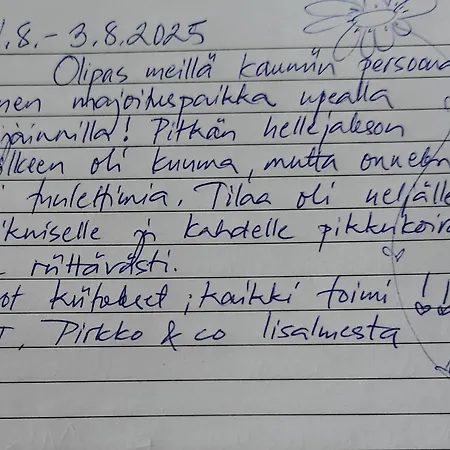 .8. - 3.8.2025
Olipas meillä kauniin persoona
nen majoituspaikka upealla
jainnilla! Pitkän hellejakson
lkeen oli kuuma, mutta onneksi
i tuulettimia. Tilaa oli neljälle
ikuiselle ja kahdelle pikkukoira
riittävästi.
ot kiitokset, kaikki toimi!!
T, Pirkko & co Iisalmesta